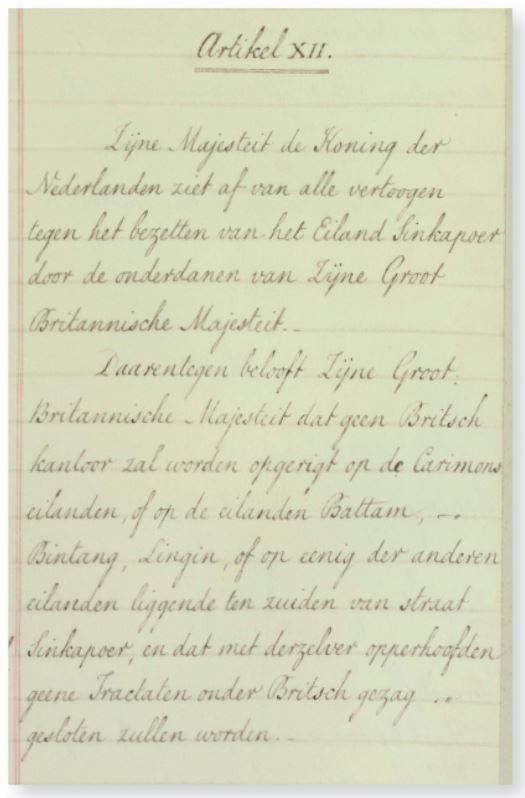 Artikel XII.
Zijne Majesteit de Koning der
Nederlanden ziet af van alle vertoogen
tegen het bezetten van het Eiland Sinkapoer
door de onderdanen van Zijne Groot
Britannische Majesteit. –
Daarentegen belooft Zijne Groot.
Britannische Majesteit dat geen Britsch
kantoor zal worden opgerigt op de Carimons
eilanden, of op de eilanden Battam, –.
Bintang, Lingin, of op eenig der anderen
eilanden liggende ten zuiden van straat
Sinkapoer, en dat met derzelver opperhoofden
geene Tractaten onder Britsch gezag ..
gesloten zullen worden. –